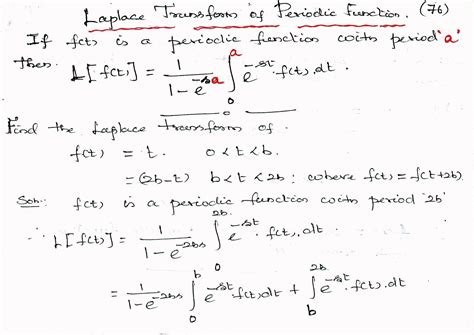 Laplace Transform of Periodic Function. (76)
If f(t) is a periodic function with period 'a'
Then. L[f(t)] = 1/(1-e^{-sa}) ∫_0^a e^{-st}. f(t).dt.
Find the Laplace transform of.
f(t) = t. 0<t<b.
= (2b-t) b<t<2b; where f(t) = f(t+2b).
Soln: f(t) is a periodic function with period '2b'
∴ L[f(t)] = 1/(1-e^{-2bs}) ∫_0^{2b} e^{-st}. f(t).dt
= 1/(1-e^{-2bs}) ∫_0^b e^{-st}.f(t)dt + ∫_b^{2b} e^{-st}.f(t).dt